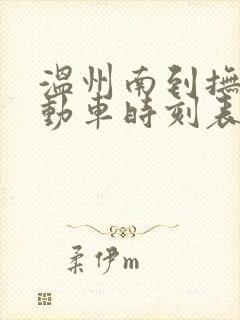 温州南到撫
動車時刻表
柔伊m